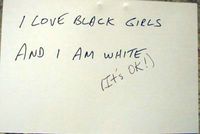 I LOVE BLACK GIRLS
AND I AM WHITE
(It's OK!)